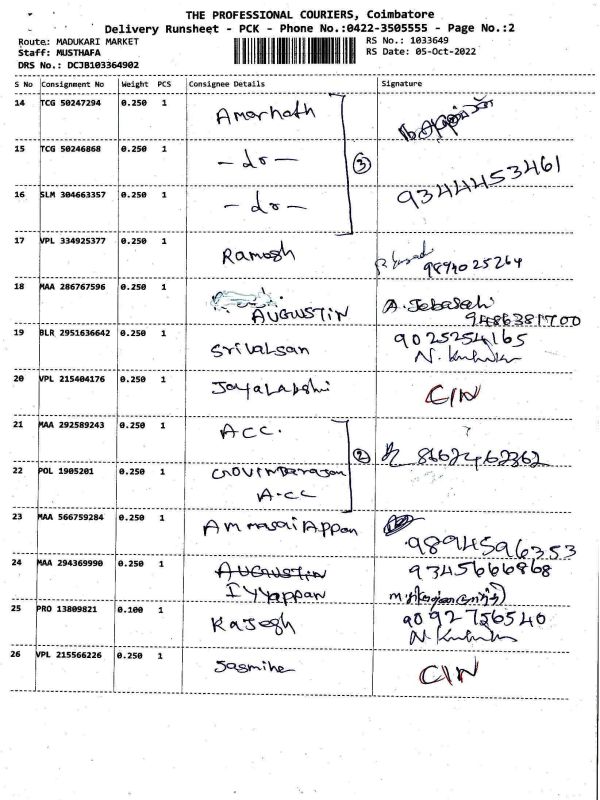 THE PROFESSIONAL COURIERS, Coimbatore
Delivery Runsheet - PCK - Phone No.:0422-3505555 - Page No.:2
Route: MADUKARI MARKET
RS No.: 1033649
Staff: MUSTHAFA
RS Date: 05-Oct-2022
DRS No.: DCJB103364902
S No Consignment No Weight PCS Consignee Details Signature
14 TCG 50247294 0.250 1 Amarnath
15 TCG 50246868 0.250 1 -do- 3
16 SLM 304663357 0.250 1 -do- 9344453461
17 VPL 334925377 0.250 1 Ramesh
9894025264
18 MAA 286767596 0.250 1 AUGUSTIN A. Jebaselvi
9486381700
19 BLR 2951636642 0.250 1 Srivalsan 9025254165
20 VPL 215404176 0.250 1 Jayalakshi CIN
21 MAA 292589243 0.250 1 ACC. 2 8662462362
22 POL 1905201 0.250 1 Govindarajan
A.CC
23 MAA 566759284 0.250 1 Ammasai Appan
9894596353
24 MAA 294369990 0.250 1 AUGUSTIN 9345666868
Iyyappan
25 PRO 13809821 0.100 1 Rajesh 9092756540
26 VPL 215566226 0.250 1 Jasmine CIN